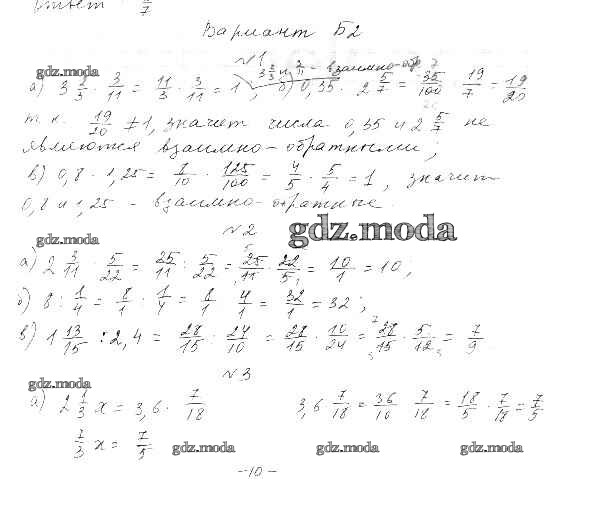 Ответ 2/7
Вариант Б2
№1
3 2/3 и 3/11 - взаимно-обр
а) 3 2/3 · 3/11 = 11/3 · 3/11 = 1, б) 0,35 · 2 5/7 = 35/100 · 19/7 = 19/20
т.к. 19/20 ≠ 1, значит числа 0,35 и 2 5/7 не
являются взаимно-обратными;
в) 0,8 · 1,25 = 8/10 · 125/100 = 4/5 · 5/4 = 1, значит
0,8 и 1,25 - взаимно-обратные.
№2
а) 2 3/11 : 5/22 = 25/11 : 5/22 = 25/11 · 22/5 = 10/1 = 10;
б) 8 : 1/4 = 8/1 : 1/4 = 8/1 · 4/1 = 32/1 = 32;
в) 1 13/15 : 2,4 = 28/15 : 24/10 = 28/15 · 10/24 = 28/15 · 5/12 = 7/9
№3
а) 2 1/3 x = 3,6 · 7/18    3,6 · 7/18 = 36/10 · 7/18 = 18/5 · 7/18 = 7/5
7/3 x = 7/5
-10-
gdz.moda
gdz.moda
gdz.moda
gdz.moda
gdz.moda
gdz.moda
gdz.moda